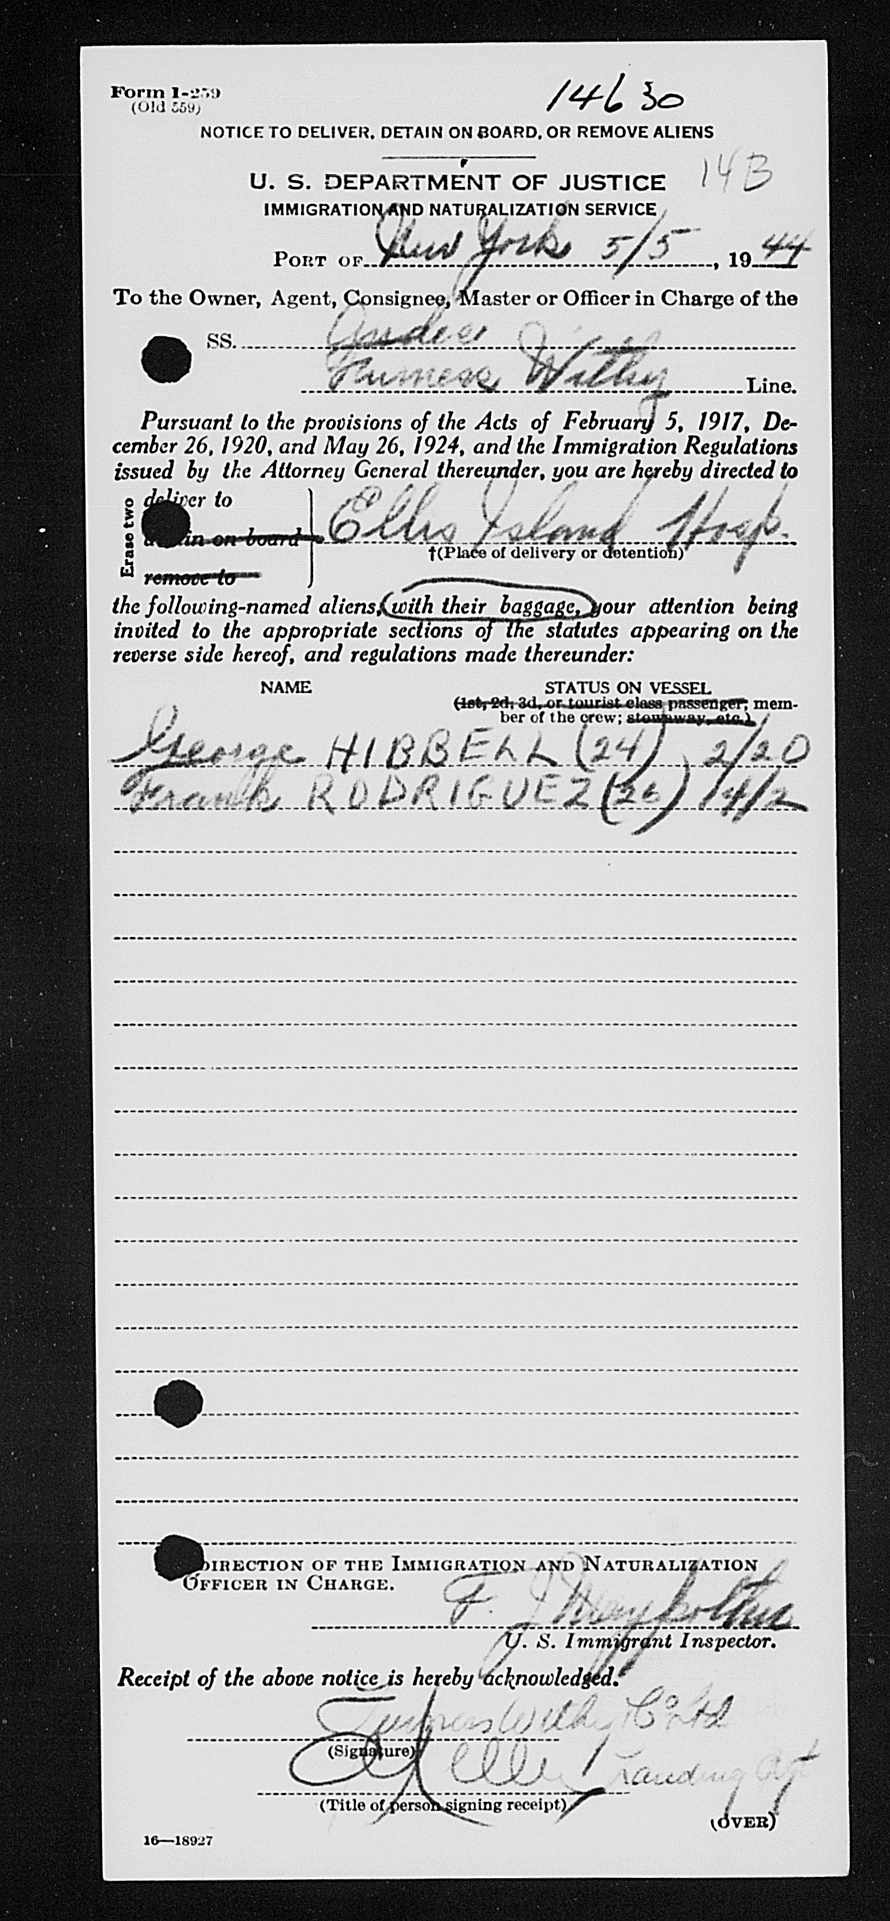 Form I-259
(Old 559)
14630
NOTICE TO DELIVER, DETAIN ON BOARD, OR REMOVE ALIENS
14B
U. S. DEPARTMENT OF JUSTICE
IMMIGRATION AND NATURALIZATION SERVICE
PORT OF New York 5/5, 1944
To the Owner, Agent, Consignee, Master or Officer in Charge of the
SS.
Furness Withy Line.
Pursuant to the provisions of the Acts of February 5, 1917, De-
cember 26, 1920, and May 26, 1924, and the Immigration Regulations
issued by the Attorney General thereunder, you are hereby directed to
Erase two
deliver to
in on board
remove to
Ellis Island Hosp.
†(Place of delivery or detention)
the following-named aliens, with their baggage, your attention being
invited to the appropriate sections of the statutes appearing on the
reverse side hereof, and regulations made thereunder:
NAME STATUS ON VESSEL
(1st, 2d, 3d, or tourist class passenger; mem-
ber of the crew; stowaway, etc.)
George HIBBELL (24) 2/20
Frank RODRIGUEZ (26) 14/2
DIRECTION OF THE IMMIGRATION AND NATURALIZATION
OFFICER IN CHARGE.
F. J
U. S. Immigrant Inspector.
Receipt of the above notice is hereby acknowledged.
Furness Withy Co Ltd
(Signature)
Landing Agt
(Title of person signing receipt)
(OVER)
16—18927